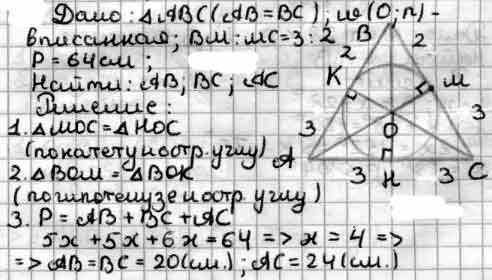 Дано: △ABC (AB=BC); ω(O;r)-
вписанная; BM:MC=3:2
P=64см;
Найти: AB; BC; AC
Решение:
1. △MOC=△HOC
(по катету и остр. углу)
2. △BOM=△BOK
(по гипотенузе и остр. углу)
3. P=AB+BC+AC
5x+5x+6x=64=>x=4=>
=>AB=BC=20(см.); AC=24(см.)
B
2
2
K
M
3
3
O
A
3
H
3
C